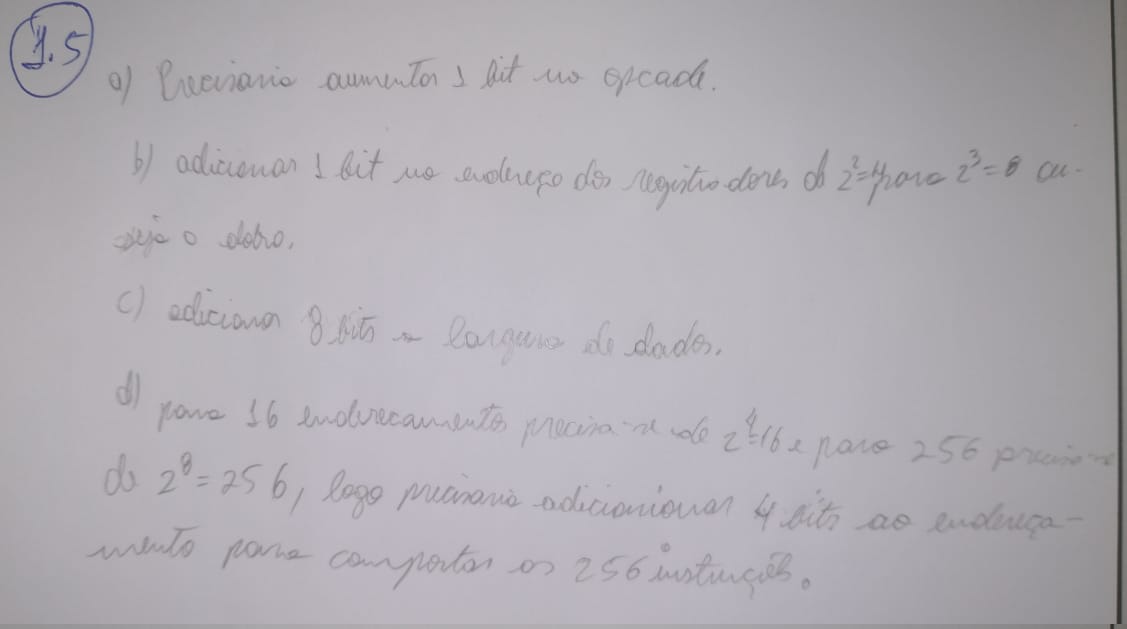 1.5
a) Precisaria aumentar 1 bit no opcode.
b) adicionar 1 bit no endereço dos registradores de 2²=4 para 2³=8 ou-
seja o dobro.
c) adicionar 8 bits a largura de dados.
d) para 16 enderecamentos precisa-se de 2⁴=16 e para 256 precisa-se
de 2⁸=256, logo precisaria adicionionar 4 bits ao endereça-
mento para comportar as 256 instruções.